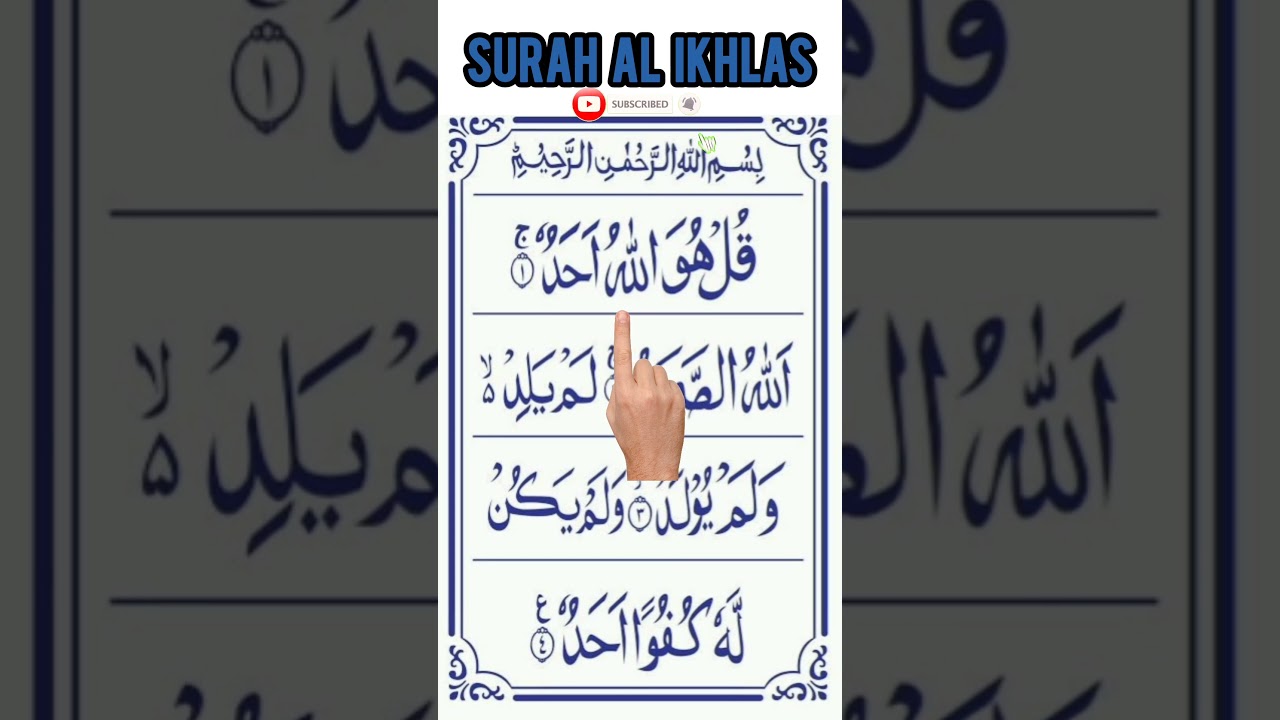 SURAH AL IKHLAS
SUBSCRIBED
بِسْمِ اللّٰهِ الرَّحْمٰنِ الرَّحِيْمِ
قُلْ هُوَ اللّٰهُ اَحَدٌ ۚ ۝١
اَللّٰهُ لَمْ يَلِدْ ۙ۵
وَلَمْ يُوْلَدْ ۝٣ وَلَمْ يَكُنْ
لَّهٗ كُفُوًا اَحَدٌ ۝٤ ع